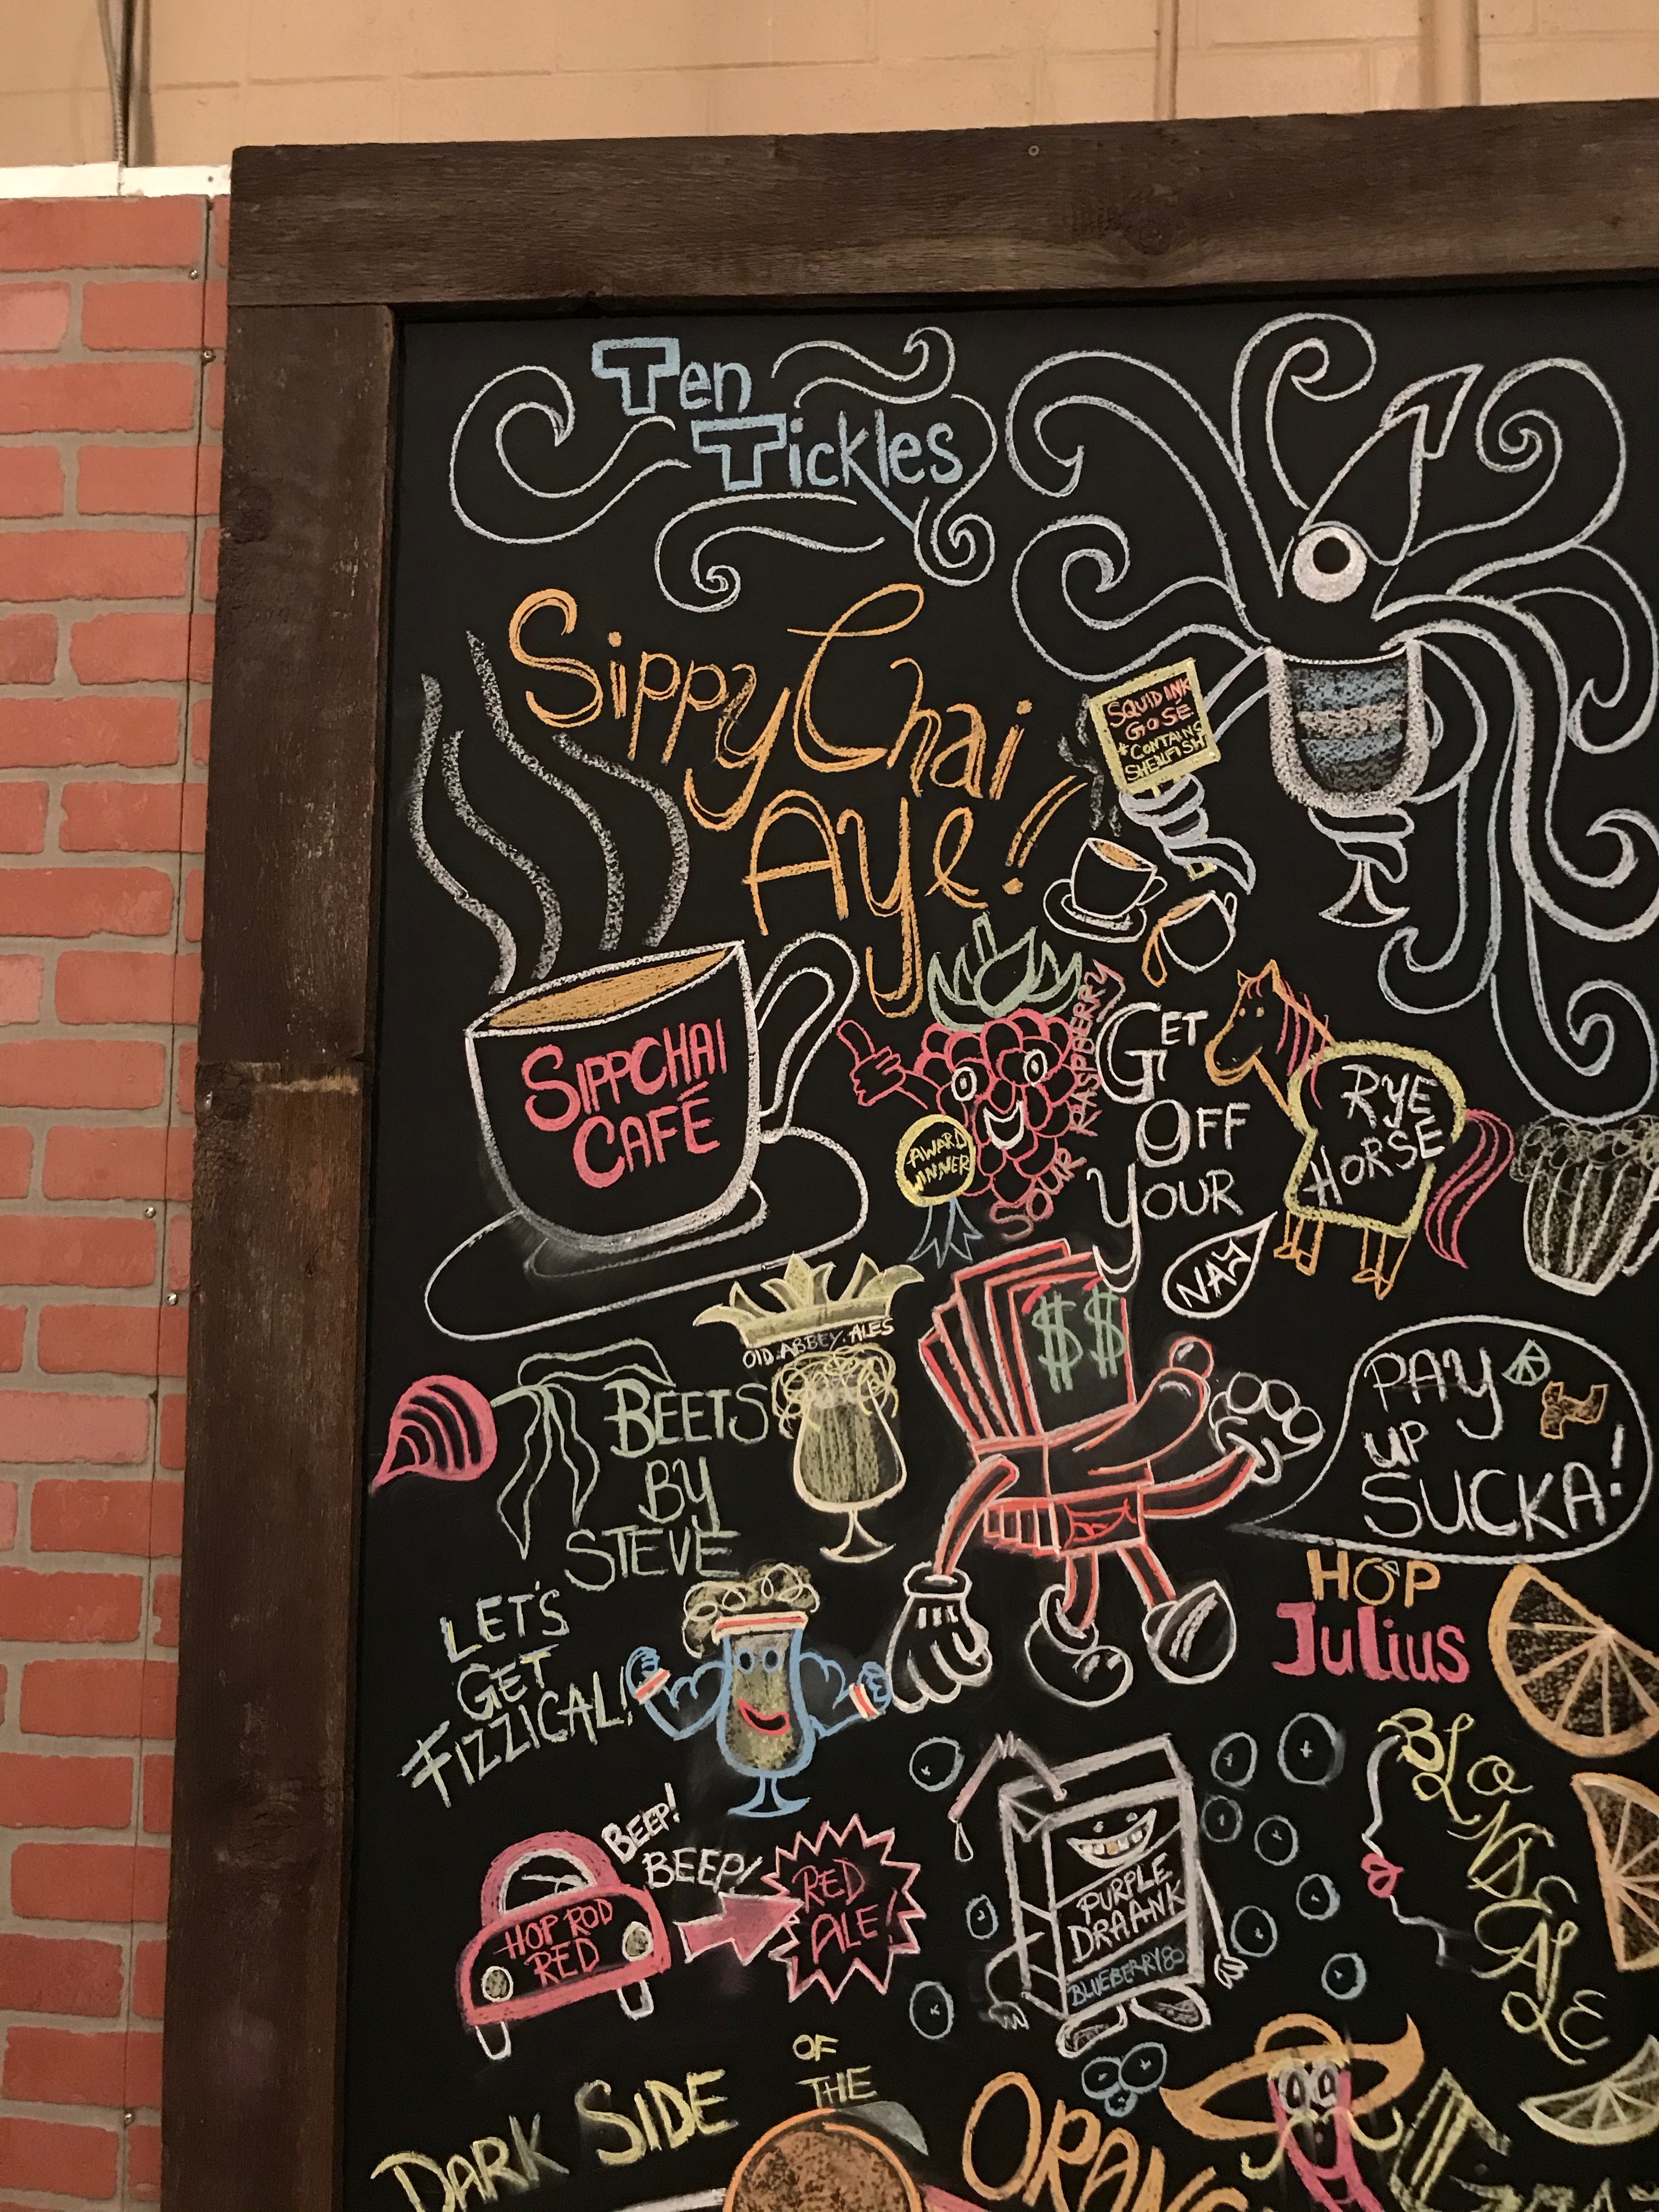 Ten
Tickles
Sippy Chai
Aye!
SQUID INK
GOSE
*CONTAINS
SHELLFISH
SIPPCHAI
CAFÉ
SOUR RASPBERRY
AWARD
WINNER
GET
OFF
YOUR
RYE
HORSE
NAY
OLD.ABBEY.ALES
BEETS
BY
STEVE
$$
PAY
UP
SUCKA!
LET'S
GET
FIZZICAL!
HOP
Julius
BEEP!
BEEP!
HOP ROD
RED
RED
ALE!
PURPLE
DRAANK
BLONDE
ALE
DARK SIDE
OF
THE